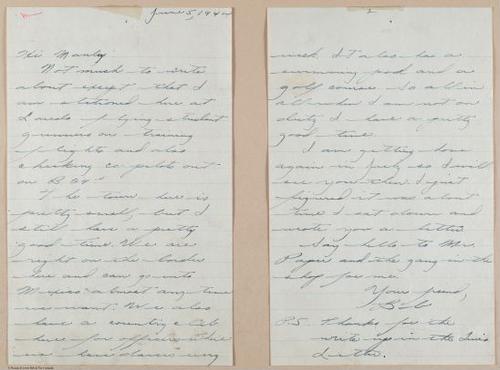 June 5, 1944
Hi Manley
Not much to write
about except that I
am stationed here at
Laredo flying student
gunners on training
flights and also
checking co-pilots out
on B 24s
The town here is
pretty small, but I
still have a pretty
good time. We are
right on the border
here and can go into
Mexico almost any time
we want. We also
have a country club
here for officers where
we have dances every
2
week. It also has a
swimming pool and a
golf course. So all in
all when I am not on
duty I have a pretty
good time.
I am getting leave
again in July so I will
see you then. I just
figured it was about
time I sat down and
wrote you a letter.
Say hello to Mr.
and the gang in the
shop for me.
Your friend,
Bob
P.S. Thanks for the
write up in the